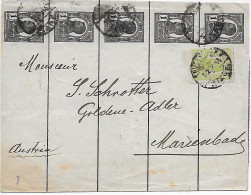 Monsieur
S. Schrotter
Goldene-Adler
Marienbad
Austria